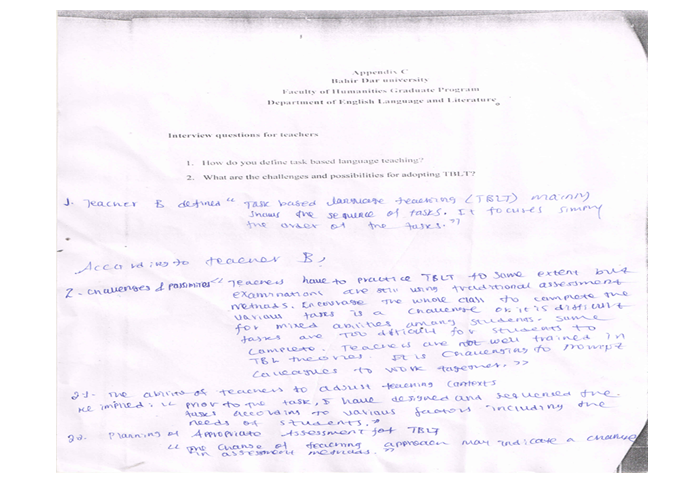 Appendix C
Bahir Dar university
Faculty of Humanities Graduate Program
Department of English Language and Literature
Interview questions for teachers
1. How do you define task based language teaching?
2. What are the challenges and possibilities for adopting TBLT?
1. Teacher B defined "Task based language teaching (TBLT) mainly
shows the sequence of tasks. It focuses simply
the order of the tasks."
According to teacher B,
2 - challenges & "Teachers have to practice TBLT to some extent but
examinations are still using traditional assessment
methods. Encourage the whole class to complete the
various tasks is a challenge or it is difficult
for mixed abilities among students. Some
tasks are too difficult for students to
complete. Teachers are not well trained in
TBL theories. It is challenging to prompt
colleagues to work together."
21- The ability of teachers to adjust teaching contexts
He implied: "prior to the task, I have designed and sequenced the
tasks according to various factors including the
needs of students."
22. Planning of Appropriate Assessment for TBLT
"The change of teaching approach may indicate a change
in assessment methods."